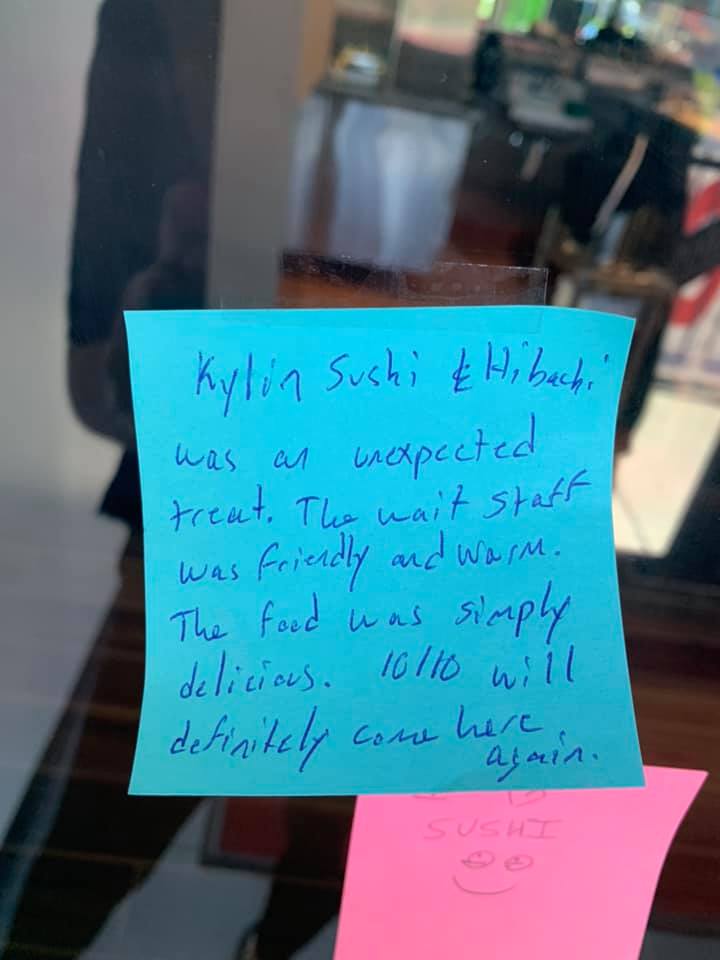 Kylin Sushi & Hibachi
was an unexpected
treat. The wait staff
was friendly and warm.
The food was simply
delicious. 10/10 will
definitely come here
again.
SUSHI